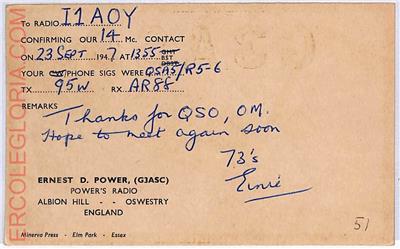 To RADIO I1AOY
CONFIRMING OUR 14 Mc. CONTACT
ON 23 SEPT 1947 AT 1355 GMT
BST
YOUR CW PHONE SIGS WERE QSA5/R5-6
TX 95W RX AR88
REMARKS
Thanks for QSO, OM.
Hope to meet again soon
73's
Ernie
ERNEST D. POWER, (G3ASC)
POWER'S RADIO
ALBION HILL - - OSWESTRY
ENGLAND
Minerva Press - Elm Park - Essex
51
ERCOLEGLORIA.COM